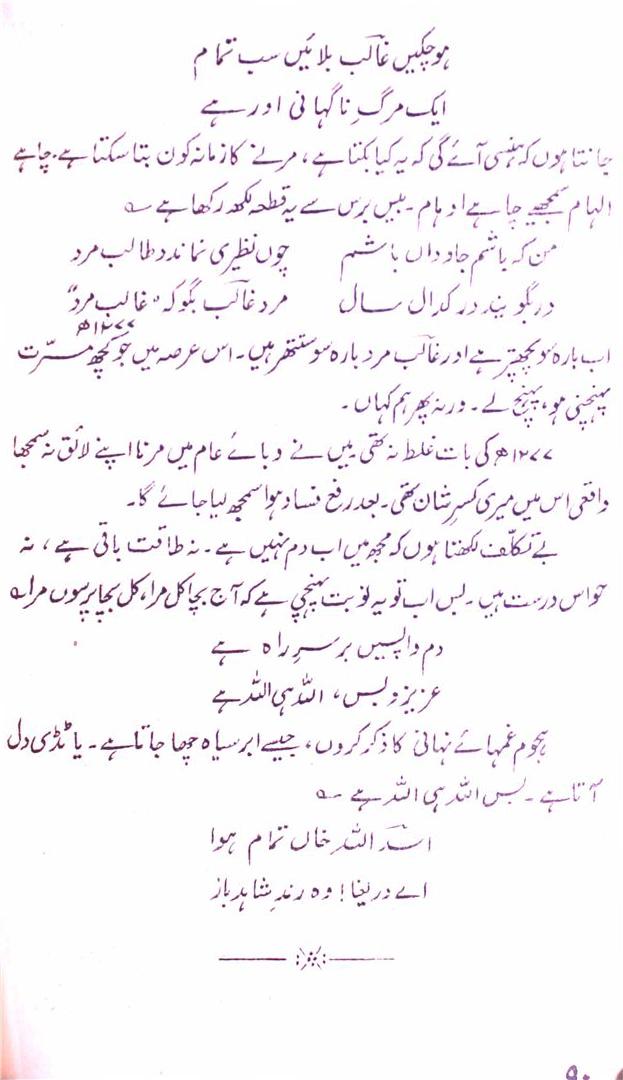 ہو چکیں غالبؔ بلائیں سب تمام
ایک مرگِ ناگہانی اور ہے
جانتا ہوں کہ ہنسی آئے گی کہ یہ کیا بکتا ہے، مرنے کا زمانہ کون بتا سکتا ہے۔ چاہے
الہام سمجھیے چاہے اوہام۔ بیس برس سے یہ قطعہ لکھ رکھا ہے ؎
من کہ باشم جاوداں باشم چوں نظیری نماند و طالب مرد
در بگویند در کدامل سال مرد غالبؔ بگو کہ "غالب مرد"
۱۲۷۷ھ
اب بارہ سو پچھتر ہے اور غالبؔ مرد بارہ سو ستتر ہیں۔ اس عرصہ میں جو کچھ مسرّت
پہنچنی ہو، پہنچ لے۔ ورنہ پھر ہم کہاں۔
۱۲۷۷ھ کی بات غلط نہ تھی میں نے وبائے عام میں مرنا اپنے لائق نہ سمجھا
واقعی اس میں میری کسرِ شان تھی۔ بعد رفع فساد ہوا سمجھ لیا جائے گا۔
بے تکلّف لکھتا ہوں کہ مجھ میں اب دم نہیں ہے۔ نہ طاقت باقی ہے، نہ
حواس درست ہیں۔ بس اب تو یہ نوبت پہنچی ہے کہ آج بچا کل مرا، کل بچا پرسوں مرا ؎
دم واپسیں برسرِ راہ ہے
عزیزو بس، اللہ ہی اللہ ہے
ہجوم غمہائے نہانی کا ذکر کروں، جیسے ابر سیاہ چھا جاتا ہے۔ یا ٹڈی دل
آتا ہے۔ بس اللہ ہی اللہ ہے ؎
اسدؔ اللہ خاں تمام ہوا
اے دریغا! وہ رندِ شاہد باز
۹۰